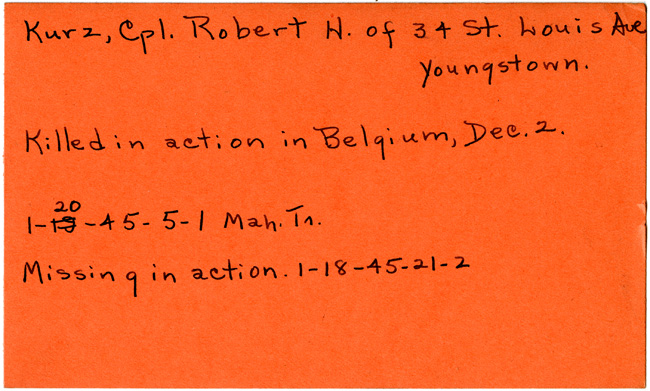 Kurz, Cpl. Robert H. of 34 St. Louis Ave
Youngstown.
Killed in action in Belgium, Dec. 2.
1-20-45-5-1 Mah. Tn.
Missing in action. 1-18-45-21-2